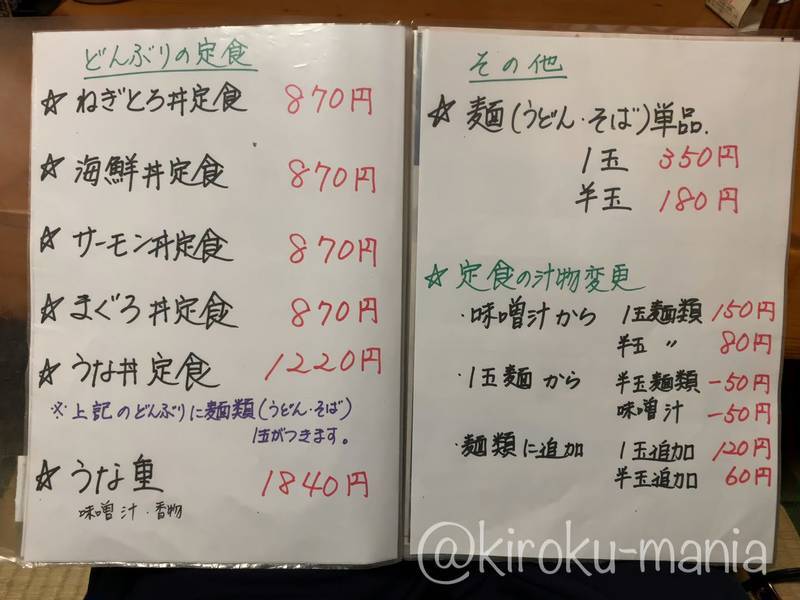 どんぶりの定食
☆ ねぎとろ丼定食 870円
☆ 海鮮丼定食 870円
☆ サーモン丼定食 870円
☆ まぐろ丼定食 870円
☆ うな丼定食 1220円
※上記のどんぶりに麺類(うどん・そば)
1玉がつきます。
☆ うな重 1840円
味噌汁・香物
その他
☆ 麺(うどん・そば)単品.
1玉 350円
半玉 180円
☆ 定食の汁物変更
・味噌汁から 1玉麺類 150円
半玉 〃 80円
・1玉麺から 半玉麺類 -50円
味噌汁 -50円
・麺類に追加 1玉追加 120円
半玉追加 60円
@kiroku-mania